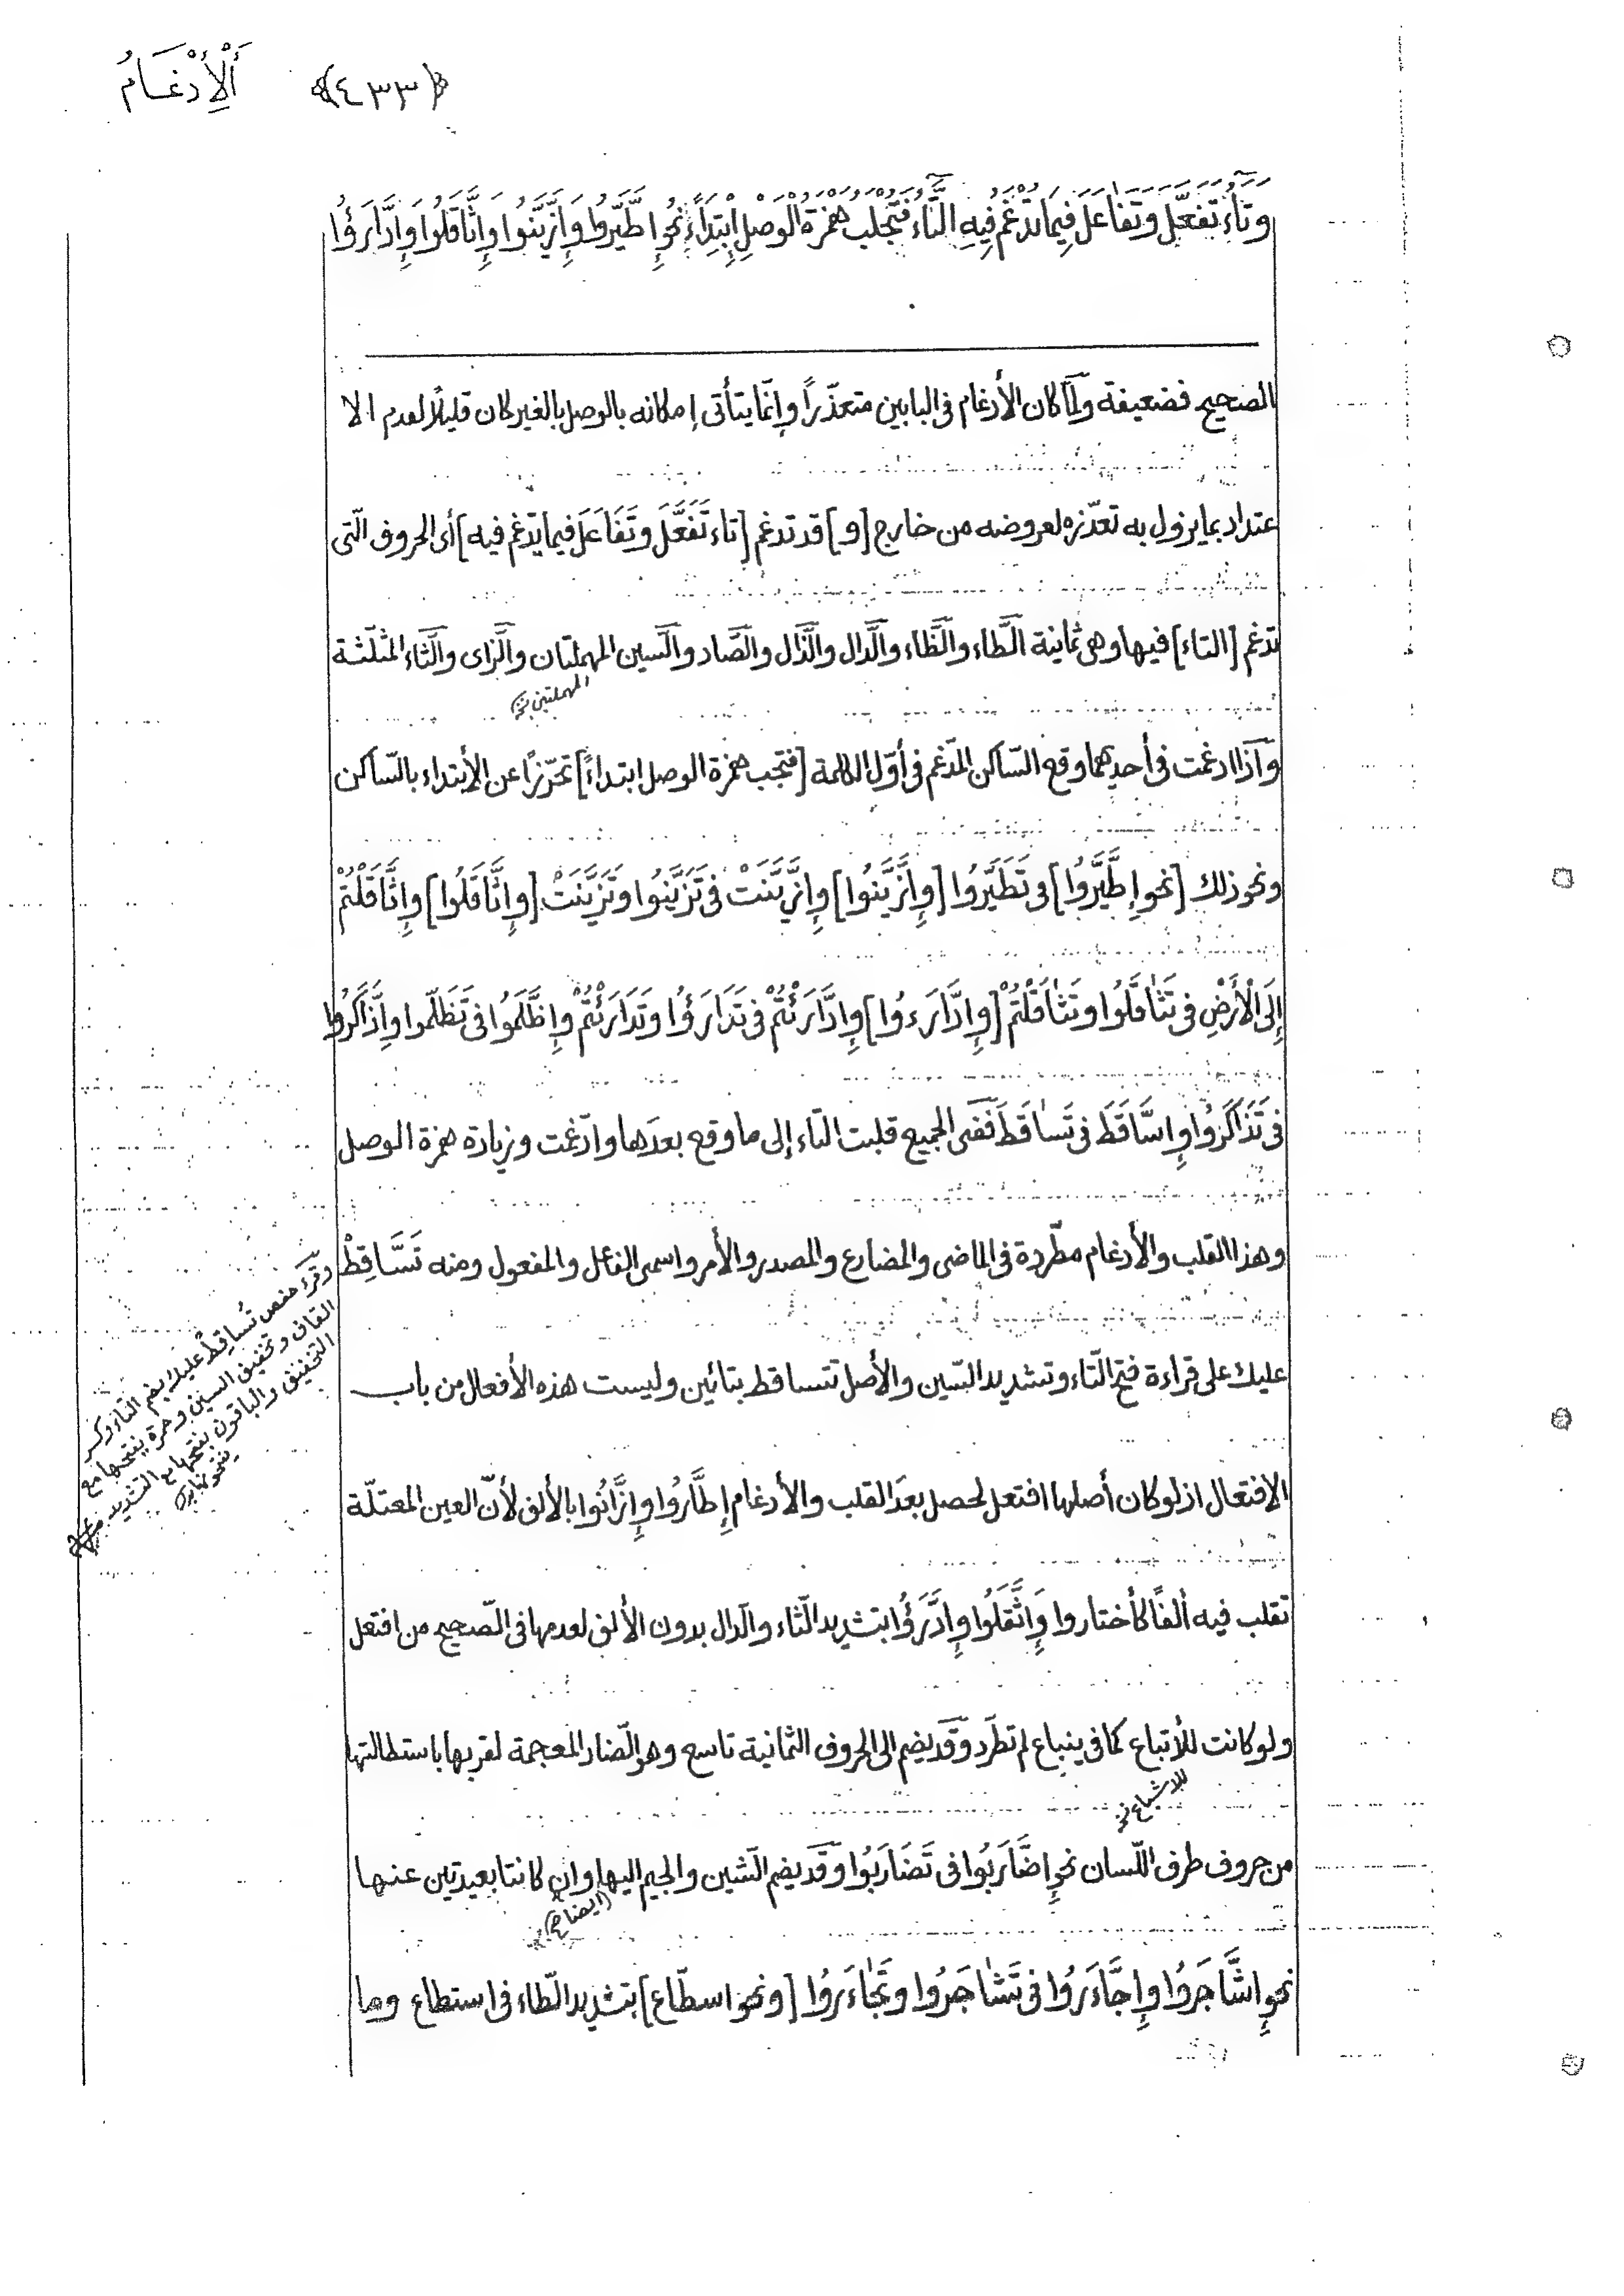 ﴿٤٣٣﴾ أَلْأِدْغَامُ
وَتَاءُ تَفَعَّلَ وَتَفَاعَلَ فِيمَا تُدْغَمُ فِيهِ التَّاءُ فَتُجْلَبُ هَمْزَةُ الْوَصْلِ إِبْتِدَاءً نَحْوُ إِطَّيَّرُوا وَإِزَّيَّنُوا وَإِثَّاقَلُوا وَإِدَّارَؤُا
الصحيح فضعيفة ولمّا كان الأدغام فى البابين متعذّراً وإنّما يتأتى إمكانه بالوصل بالغير كان قليلاً لعدم الا
عتداد بما يزول به تعذّره لعروضه من خارج [و] قد تدغم [تاء تَفَعَّلَ وتَفَاعَلَ فيما يدّغم فيه] أى الحروف الّتى
تدغم [التاء] فيها وهى ثمانية الطّاء والظّاء والدّال والذّال والصّاد والسّين المهملتان والزّاى والثّاء المثلّثة
المهملتين نخ
وَاذا ادغمت فى أحدهما وقع السّاكن المدّغم فى أوّل الكلمة [فتجب همزة الوصل ابتداءً] تحرّزاً عن الأبتداء بالسّاكن
ونحو ذلك [نحو إِطَّيَّرُوا] فى تَطَيَّرُوا [وإِزَّيَّنُوا] وإِزَّيَّنَتْ فى تَزَيَّنُوا وتَزَيَّنَتْ [وإِثَّاقَلُوا] وإِثَّاقَلْتُمْ
إِلَى الْأَرْضِ فى تَثَاقَلُوا وتَثَاقَلْتُمْ [وإِدَّارَءوُا] وإِدَّارَئْتُمْ فى تَدَارَؤُا وتَدَارَئْتُمْ وإِظَّلَمُوا فى تَظَلَّمُوا وإِذَّاكَرُوا
فى تَذَاكَرُوا وإِسَّاقَطَ فى تَسَاقَطَ فَفى الجميع قلبت التّاء إلى ما وقع بعدَها وادّغمت وزيادة همزة الوصل
وهذا القلب والأدغام مطّردة فى الماضى والمضارع والمصدر والأمر واسمى الفاعل والمفعول ومنه تَسَّاقِطْ
عليك على قراءة فتح التّاء وتشديد السّين والأصل تتساقط بتائين وليست هذه الأفعال من باب
الافتعال اذ لو كان أصلها افتعل لحصل بعدَ القلب والأدغام إِطَّارُوا وإِزَّانُوا بالألف لأنّ العين المعتلّة
تقلب فيه ألفاً كأختاروا وَإِثَّقَلُوا وإِدَّرَؤُا بتشديد الثّاء والدّال بدون الألف لعدمها فى الصّحيح من افتعل
ولو كانت للأتباع كما فى ينباع لم تطّرد وقَد يضم الى الحروف الثمانية تاسع وهو الضّاد المعجمة لقربها باستطالتها
للاشباع نخ
من حروف طرف اللّسان نحو إضَّارَبُوا فى تَضَارَبُوا وقَد يضم الشّين والجيم اليها وان كانتا بعيدتين عنها
(ايضاح)
نحو إِشَّاجَرُوا وإِجَّاءَرُوا فى تَشَاجَرُوا وتَجَاءَرُوا [ونحو اسطّاع] بتشديد الطّاء فى استطاع وما
وقرء حفص تُساقِط عليك بضم التاء وكسر
القاف وتخفيف السين وحمزة بفتحها مع
التخفيف والباقون بفتحها مع التشديد